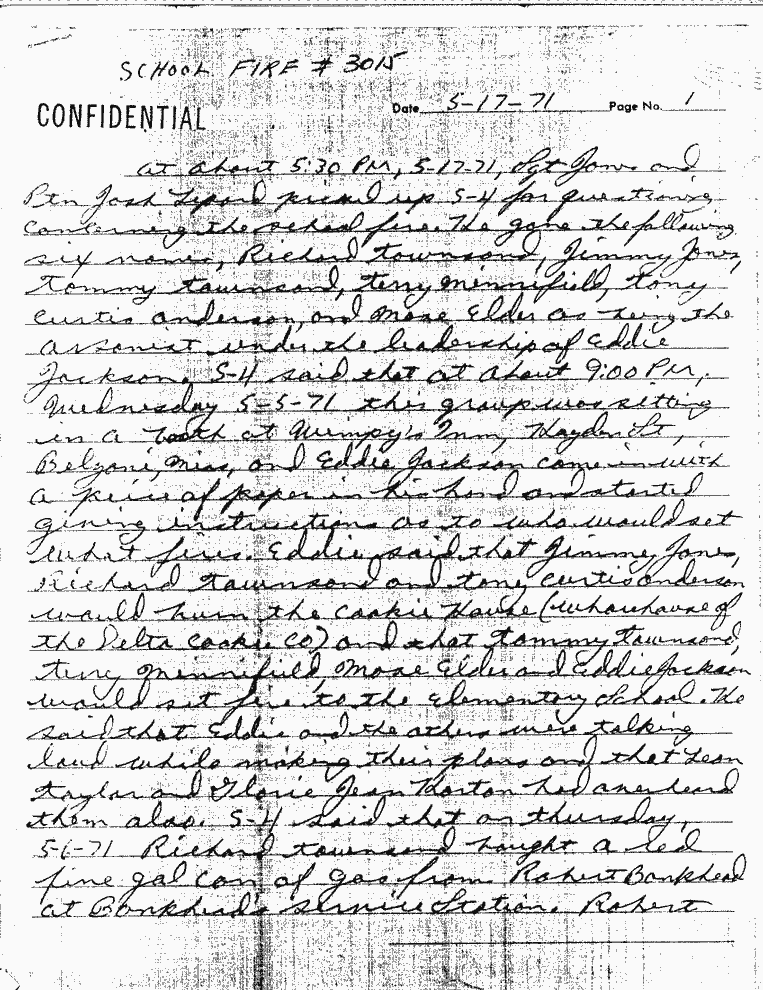 SCHOOL FIRE # 3015
CONFIDENTIAL Date 5-17-71 Page No. 1
at about 5:30 PM, 5-17-71, Sgt Jones and
Ptn Josh Lipard picked up S-4 for questioning
concerning the school fire. He gave the following
six names, Richard Townsond, Jimmy Jones,
Tommy Townsond, Terry Minnifield, Tony
Curtis Anderson, and Mose Elder as being the
arsonist under the leadership of Eddie
Jackson. S-4 said that at about 9:00 PM,
Wednesday 5-5-71 this group was sitting
in a booth at Wimpy's Inn, Hayden St,
Belzoni, Miss, and Eddie Jackson came in with
a piece of paper in his hand and started
giving instructions as to who would set
what fires. Eddie said that Jimmy Jones,
Richard Townsond and Tony Curtis Anderson
would burn the Cookie House (wharehouse of
the Delta Cookie Co) and that Tommy Townsond,
Terry Minnifield, Mose Elder and Eddie Jackson
would set fire to the Elementory School. He
said that Eddie and the others were talking
loud while making their plans and that Leon
Taylor and Glorie Jean Horton had overheard
them also. S-4 said that on thursday,
5-6-71 Richard Townsond bought a red
five gal can of gas from Robert Bankhead
at Bankhead's Service Station. Robert